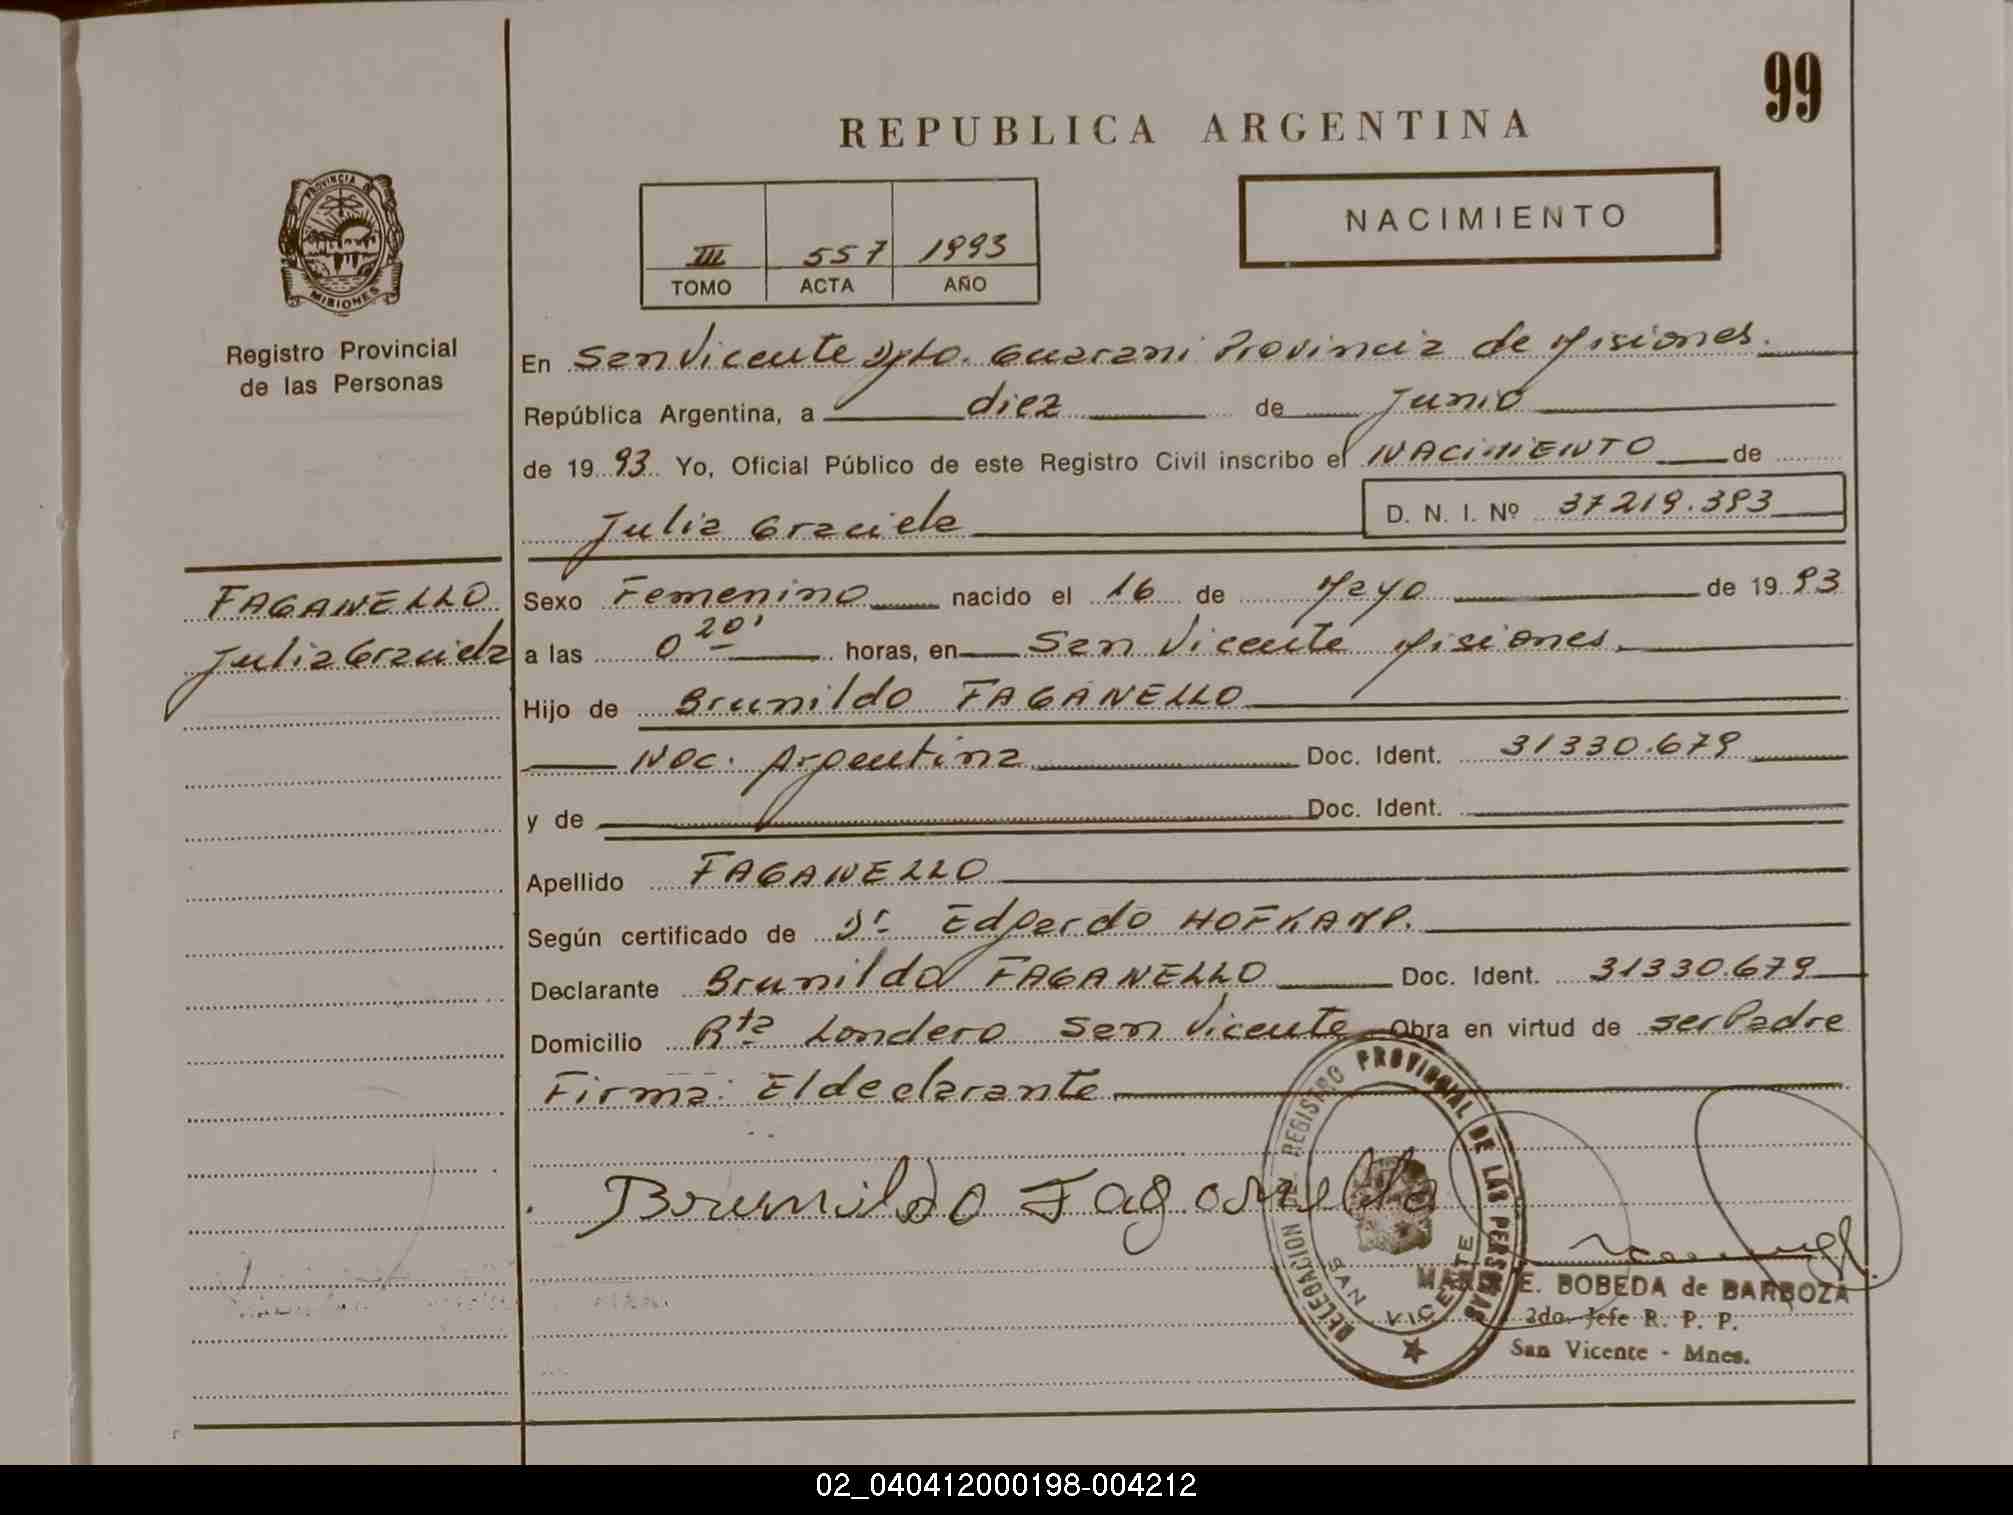 99
REPUBLICA ARGENTINA
PROVINCIA DE
MISIONES
Registro Provincial
de las Personas
III 557 1993
TOMO ACTA AÑO
NACIMIENTO
En San Vicente Dpto. Guarani Provincia de Misiones.
República Argentina, a diez de Junio
de 1993 Yo, Oficial Público de este Registro Civil inscribo el NACIMIENTO de
Julia Graciela D. N. I. Nº 37219.393
FAGANELLO
Julia Graciela
Sexo Femenino nacido el 16 de Mayo de 1993
a las 0 20' horas, en San Vicente Misiones.
Hijo de Brunildo FAGANELLO
Nac. Argentina Doc. Ident. 31330.679
y de Doc. Ident.
Apellido FAGANELLO
Según certificado de Dr. Edgardo HOFKAMP.
Declarante Brunildo FAGANELLO Doc. Ident. 31330.679
Domicilio Rta Londero San Vicente Obra en virtud de ser Padre
Firma: El declarante
Brunildo Faganello
DELEGACION REGISTRO PROVINCIAL DE LAS PERSONAS
SAN VICENTE
E. BOBEDA de BARBOZA
2do. Jefe R. P. P.
San Vicente - Mnes.
02_040412000198-004212